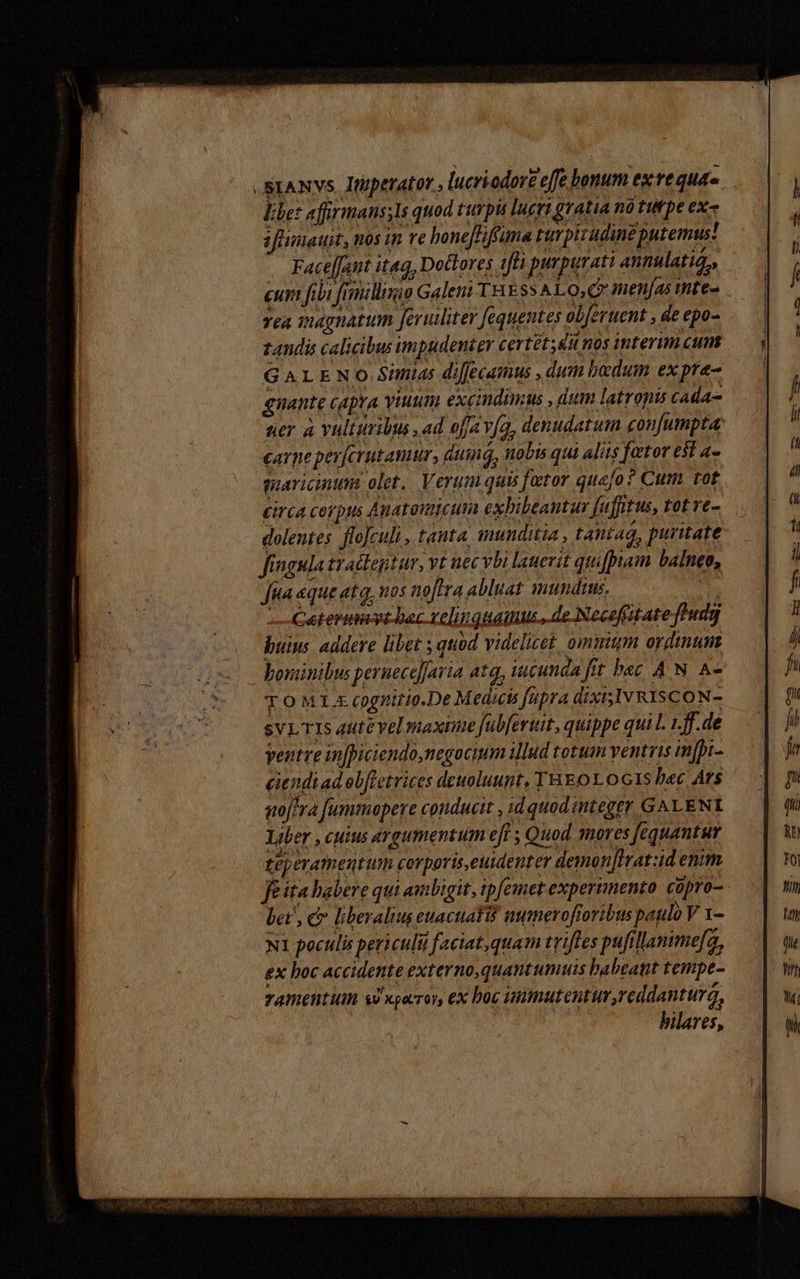 SIANVS Imperator, lucri odorē esse bonum ex re qua-
libet affirmans; Is quod turpis lucri gratia nō turpe ex-
istimauit, nos in re honestissima turpitudinē putemus!
Facessant itaq, Doctores isti purpurati annulatiq,
cum sibi simillimo Galeni THESSALO, & mensas inte-
rea magnatum seruiliter sequentes obseruent, de epo-
tandis calicibus impudenter certēt; dū nos interim cum
GALENO Simias dissecamus, dum hœdum ex præ-
gnante capra viuum excindimus, dum latronis cada-
uer à vulturibus, ad ossa vsq, denudatum consumpta
carne perscrutamur, dumq, nobis qui aliis fœtor est a-
maricinum olet. Verum quis fœtor quæso? Cum tot
circa corpus Anatomicum exhibeantur suffitus, tot re-
dolentes flosculi, tanta munditia, tantaq, puritate
singula tractentur, vt nec vbi lauerit quispiam balneo,
sua æque atq, nos nostra abluat manus.
Cæterum vt hæc relinquamus, de Necessitate studij
huius addere libet; quòd videlicet omnium ordinum
hominibus pernecessaria atq, iucunda sit hæc AN A-
TOMIÆ cognitio. De Medicis supra dixi; IVRISCON-
SVLTIS autē vel maxime subseruit, quippe qui l. 1. ff. de
ventre inspiciendo, negocium illud totum ventris inspi-
ciendi ad obstetrices deuoluunt, THEOLOGIS hæc Ars
nostra summopere conducit, id quod integer GALENI
Liber, cuius argumentum est; Quod mores sequantur
tēperamentum corporis, euidenter demonstrat: id enim
se ita habere qui ambigit, ipsemet experimento cōpro-
bet, & liberalius euacuatis numerosioribus paulò VI-
NI poculis periculū faciat, quam tristes pusillanimesq,
ex hoc accidente externo, quantumuis habeant tempe-
ramentum εὔκρατον, ex hoc immutentur, reddanturq,
hilares,